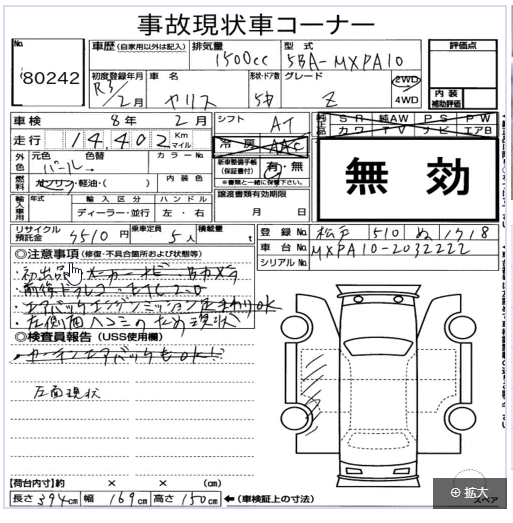 事故現状車コーナー
No.
80242
車歴 (自家用以外は記入)
排気量
1500cc
型式
5BA-MXPA10
評価点
初度登録年月
R3/2月
車名
ヤリス
形状・ドア数
5
グレード
Z
2WD
4WD
内装
補助評価
車検
8年 2月
シフト
AT
純正品
SR 純AW PS PW
カワ TV ナビ エアB
走行
14,402 Km
マイル
冷房
AAC
無効
外色
元色
パール
色替
カラーNo.
新車整備手帳
(保証書付)
有・無
※書類と一緒に保管下さい。
燃料
ガソリン・軽油・( )
内装色
譲渡書類有効期限
月 日
輸入車用
年式
輸入区分
ディーラー・並行
ハンドル
左・右
リサイクル
預託金
円
乗車定員
5人
積載量
t
登録No.
松戸 510 ぬ
車台No.
MXPA10-2032222
シリアルNo.
◎注意事項 (修復・不具合箇所および状態等)
・初出品 メーカーナビ Bカメラ
・前後ドラレコ ETC2.0
・エアバックエンジンミッション足まわりOK
・左側面ヘコミのため現状
◎検査員報告 (USS使用欄)
・カーテンエアバックもOK!!
左面現状
【荷台内寸】約 × × (cm)
長さ 394cm 幅 169cm 高さ 150cm ←(車検証上の寸法)
スペア
拡大